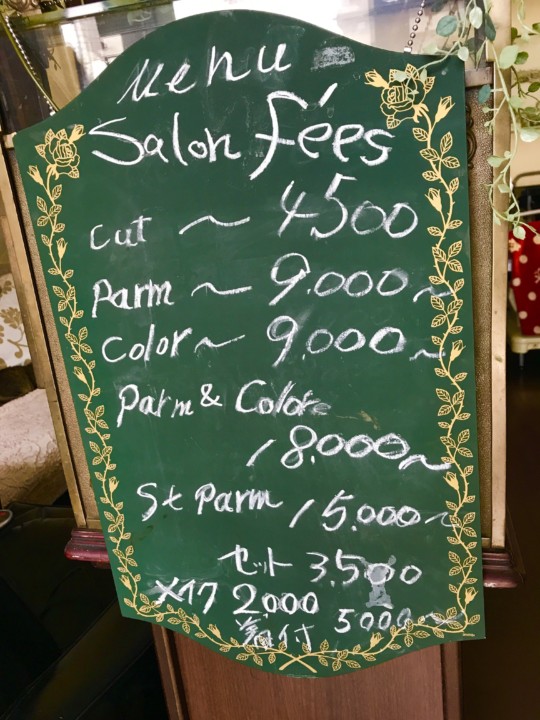 Menu
Salon fées
cut ~ 4500
Parm ~ 9.000~
Color~ 9.000~
Parm & Color
18.000~
St Parm 15.000~
セット 3.500
メイク 2.000
着付 5000~